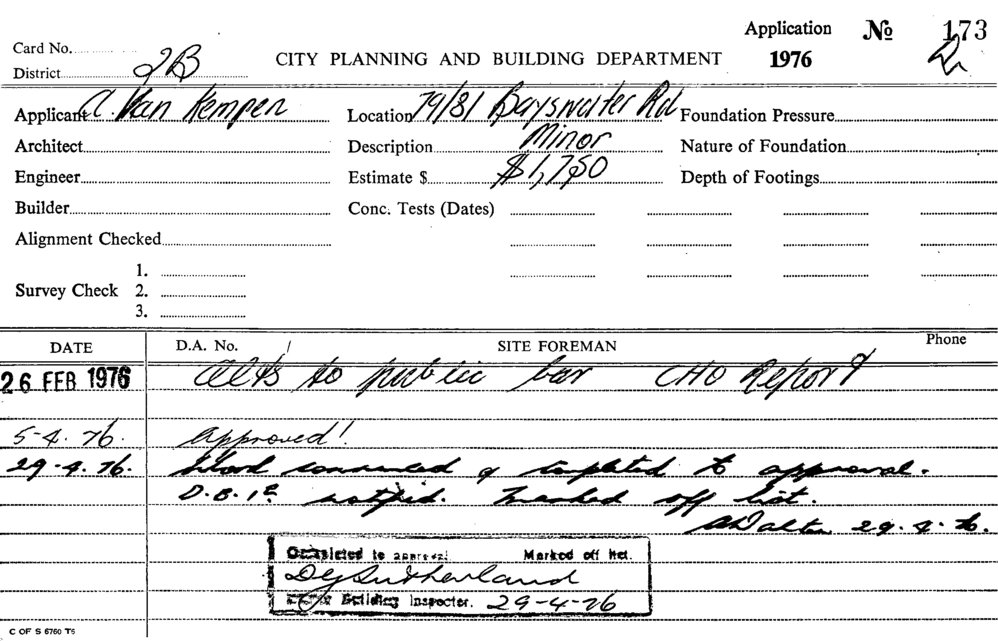 Application № 173
Card No. 1976
CITY PLANNING AND BUILDING DEPARTMENT
District 2B
Applicant A. Van Kempen Location 79/81 Bayswater Rd Foundation Pressure
Architect Description Minor Nature of Foundation
Engineer Estimate $ $1,750 Depth of Footings
Builder Conc. Tests (Dates)
Alignment Checked
1.
Survey Check 2.
3.
DATE D.A. No. / SITE FOREMAN Phone
26 FEB 1976 Alts to public bar CHO Report
5-4.76. Approved!
29.4.76. Work commenced & completed to approval.
D.B.I. notified. Marked off list.
29.4.76.
Completed to approval. Marked off list.
DG Sutherland
Building Inspector. 29-4-76
C OF S 6760 T6